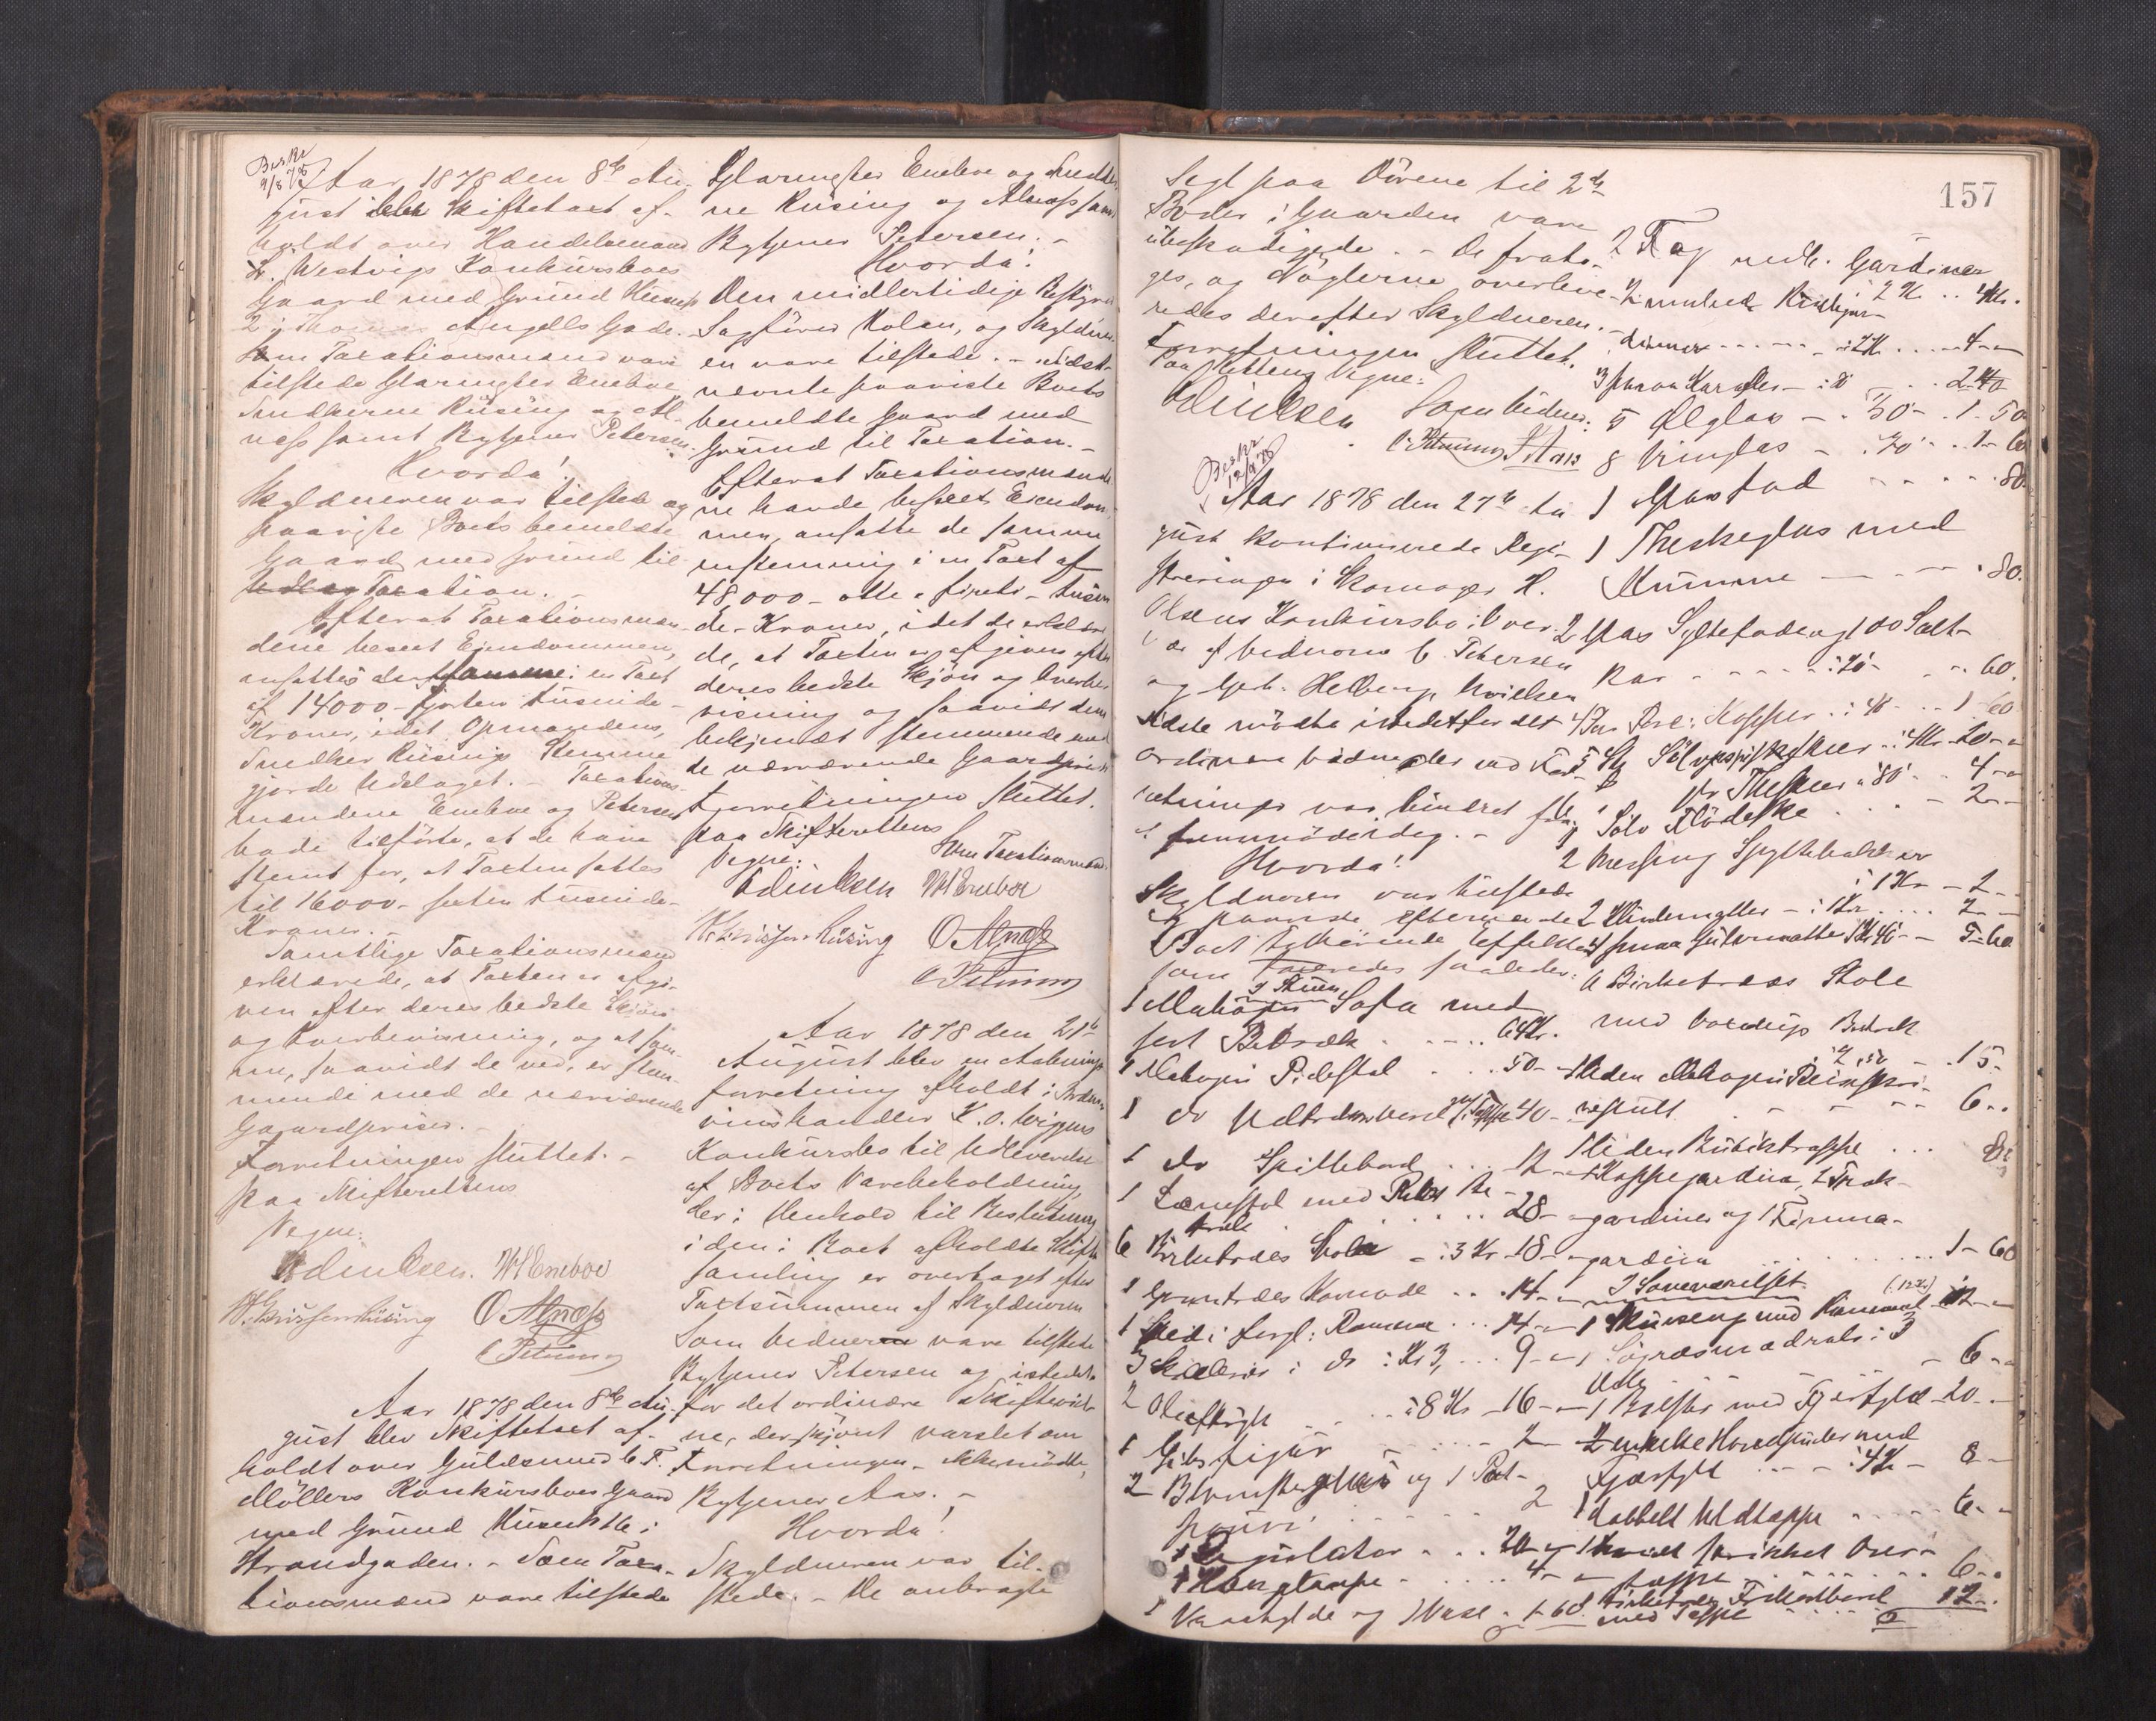 Beskr
9/8 78
Aar 1878 den 8de Au-
gust blev Skiftetaxt af-
holdt over Handelsmand
L. Westvigs Konkursboes
Gaard med Grund
2 i Thomas Angells Gade.
Som Taxationsmænd vare
tilstede Glarmester Eneboe
Snedkerne Rüsing og Al-
næss samt Bytjener Petersen.
Hvorda!
Skyldneren var tilstede og
paaviste Boets bemeldte
Gaard med Grund til
Taxation. -
Efterat Taxationsmæn-
dene beseet Eiendommen,
ansattes den i en Taxt
af 14000 - fjorten tusinde -
Kroner, idet Opmandens,
Snedker Rüsings Stemme
gjorde Udslaget. - Taxations-
mændene Eneboe og Petersen
bade tilført, at de have
stemt for, at Taxten sattes
til 16000 - sexten tusinde -
Kroner. -
Samtlige Taxationsmænd
erklærede, at Taxten er afgi-
ven efter deres bedste Skjøn
og Overbevisning, og at
saavidt de ved, er stem-
mende med de nærværende
Gaardspriser. -
Forretningen sluttet. -
Paa Skifterettens
Vegne:
WEneboe
Rüsing O Alnæss
C Petersen
Aar 1878 den 8de Au-
gust blev Skiftetaxt af-
holdt over Guldsmed C. F.
Møllers Konkursboes Gaard
med Grund i
Strandgaden. - Som Taxa-
tionsmænd vare tilstede
Glarmester Eneboe og Snedker-
ne Rüsing og Alnæss samt
Bytjener Petersen. -
Hvorda!
Den midlertidige Bestyrer
Sagfører Holan, og Skyldner-
en vare tilstede. - Sidst-
nævnte paaviste Boets
bemeldte Gaard med
Grund til Taxation. -
Efterat Taxationsmænde-
ne havde beseet Eiendom-
men, ansatte de samme
enstemmig i en Taxt af
48,000 - otte og fireti - tusin-
de - Kroner, idet de erklære-
de, at Taxten er afgiven efter
deres bedste Skjøn og Overbe-
visning og saavidt dem
bekjendt stemmende med
de nærværende Gaardspriser
Forretningen sluttet.
Paa Skifterettens
Vegne: Som Taxationsmænd:
WEneboe
Rüsing O Alnæss
C Petersen
Aar 1878 den 21de
August blev en Aabnings-
forretning afholdt i Brænde-
vinshandler K. O. Wiggens
Konkursbo til Udleverelse
af Boets Varebeholdning,
der i Henhold til Beslutning
i den i Boet afholdte Skifte-
samling er overtaget efter
Taxtsummen af Skyldneren
Som Vidner vare tilstede
Bytjener Petersen og istedet-
for det ordinære Skiftevid-
ne, der, skjønt varslet om
Forretningen - ikke mødte,
Bytjener Aas. -
Hvorda!
Skyldneren var til-
stede. - De anbragte
157
Segl paa Dørene til 2de
Boder i Gaarden vare
ubeskadigede. - De frato-
ges, og Nøglerne overleve-
redes derefter Skyldneren. -
Forretningen sluttet.
Paa Rettens Vegne:
Som Vidner:
C Petersen
Beskr
12/9 78
Aar 1878 den 27de Au-
gust kontinueredes Regi-
streringen i Skomager H.
Olsens Konkursbo
af Vidnerne C. Petersen
og Helberg Nielsen
sidste mødte istedetfor det
ordinære Vidne, der ved For-
retninger var hindret fra
at fremmøde idag. -
Hvorda!
Skyldneren var tilstede
og paaviste efternævnte
Boet tilhørende Effekter
som taxeredes saaledes:
I Stuen
1 Mahogni Sofa med
sort Betræk - - - - 64 Kr.
1 Mahogni Pidestal - - 50 -
1 do Udtræksbord 40 -
1 do Spillebord - - 12 -
1 Lænestol med - - 28 -
6 Birketræes Stole - à 3 Kr - 18 -
1 Grantræes Komode - - 14 -
1 Speil i forgl: Ramme - - 14 -
3 Skilderier i do à Kr 3, - - 9 -
2 Olietryk - - à 8 Kr - 16 -
1 Gibsfigur - - 2 -
2 Blomsterglas og 1 Pot-
pouri - - 2
1 Regulator - - 20
1 Hængelampe - - 4 -
1 Vandkylde og 1 Vase - 1 - 60
2 Fag Gardiner
à 2 Kr - 4 Kr.
2 Rullegar-
diner - - à 2 Kr - 4 -
3 Karafler - à 80 - 2.40
5 Ølglas - à 30 - 1 - 50
8 Vinglas - à 20 - 1 - 60
1 Glasfad - - 80
1 Theskeglas med
- - 80.
2 Glas Syltefade og 1 Salt-
kar - - à 20 - - 60.
4 Par Kopper à 40 - 1.60
5 Stk Sølvspiseskeer à 4 Kr - 20 -
5 do Theskeer à 80 - 4 -
1 Sølv Flødeske - - 2 -
2 Messing Spyttebakker
à 1 Kr - 2 -
2 - à 1 Kr - 2 -
4 smaa Gulvmatter 1 Kr 40 - 5 - 60
6 Birketræes Stole
med Voxdugs Betræk
à 2,50 - 15 -
1 liden Mahogni
- - 6 -
1 liden - - 8
1 Kappegardin, 2 Træk-
gardiner og 1
gardin - - 1 - 60
I Soveværelset
1 Seng med (12 Kr) 12 -
2 Søgræsmadrats à 3 - 6 -
1 Bolster med Fjærfyld - 20 -
2 enkelte Hovedpuder med
Fjærfyld - - à 4 Kr - 8 -
1 dobbelt Uldtæppe - - 6 -
1 hvidt strikket Over-
tæppe - - 6 -
1 Toiletbord
med Tæppe - - 12 -